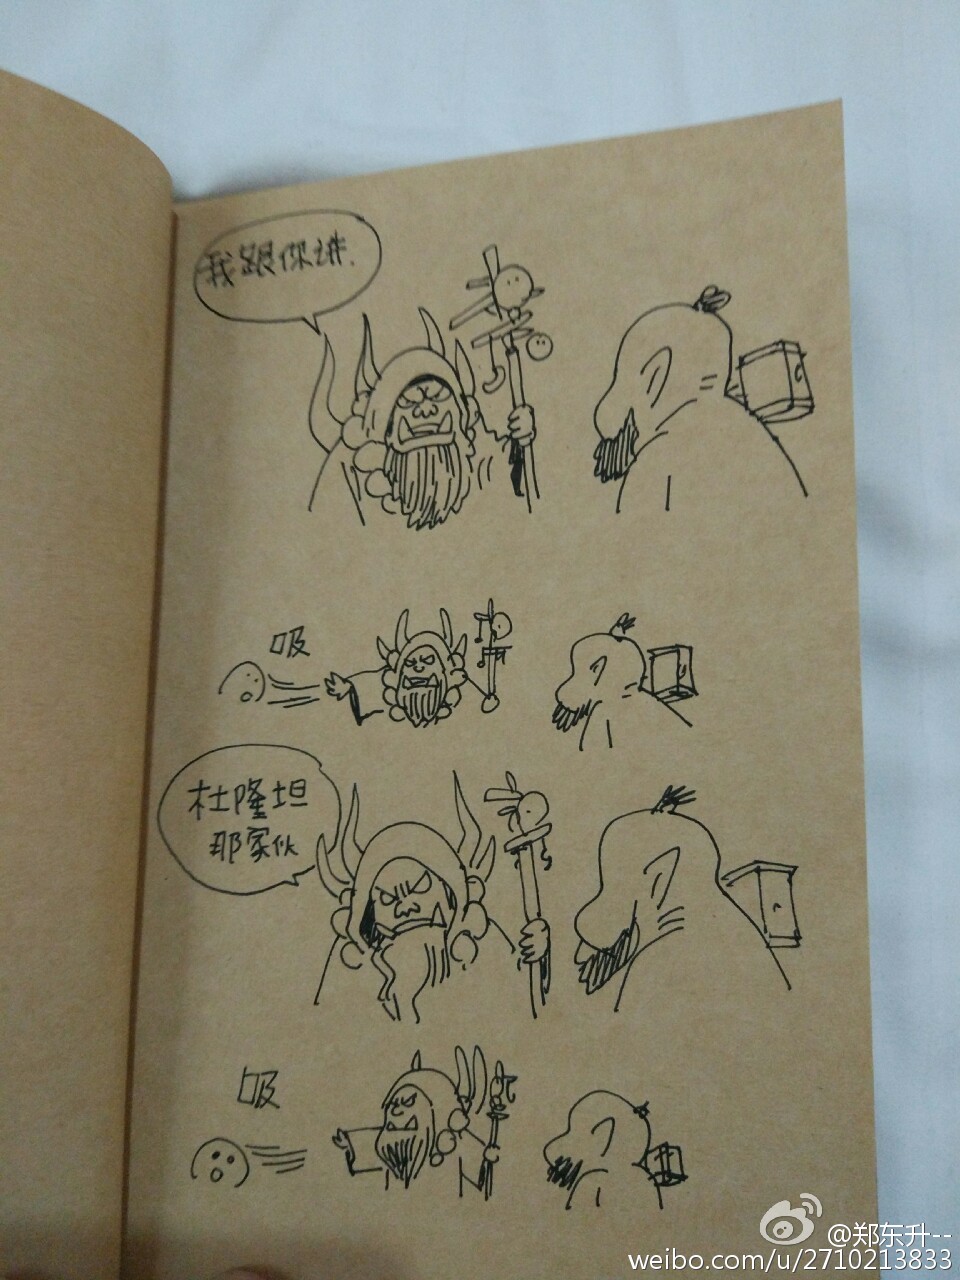 我跟你讲.
吸
杜隆坦
那家伙
吸
@郑东升--
weibo.com/u/2710213833